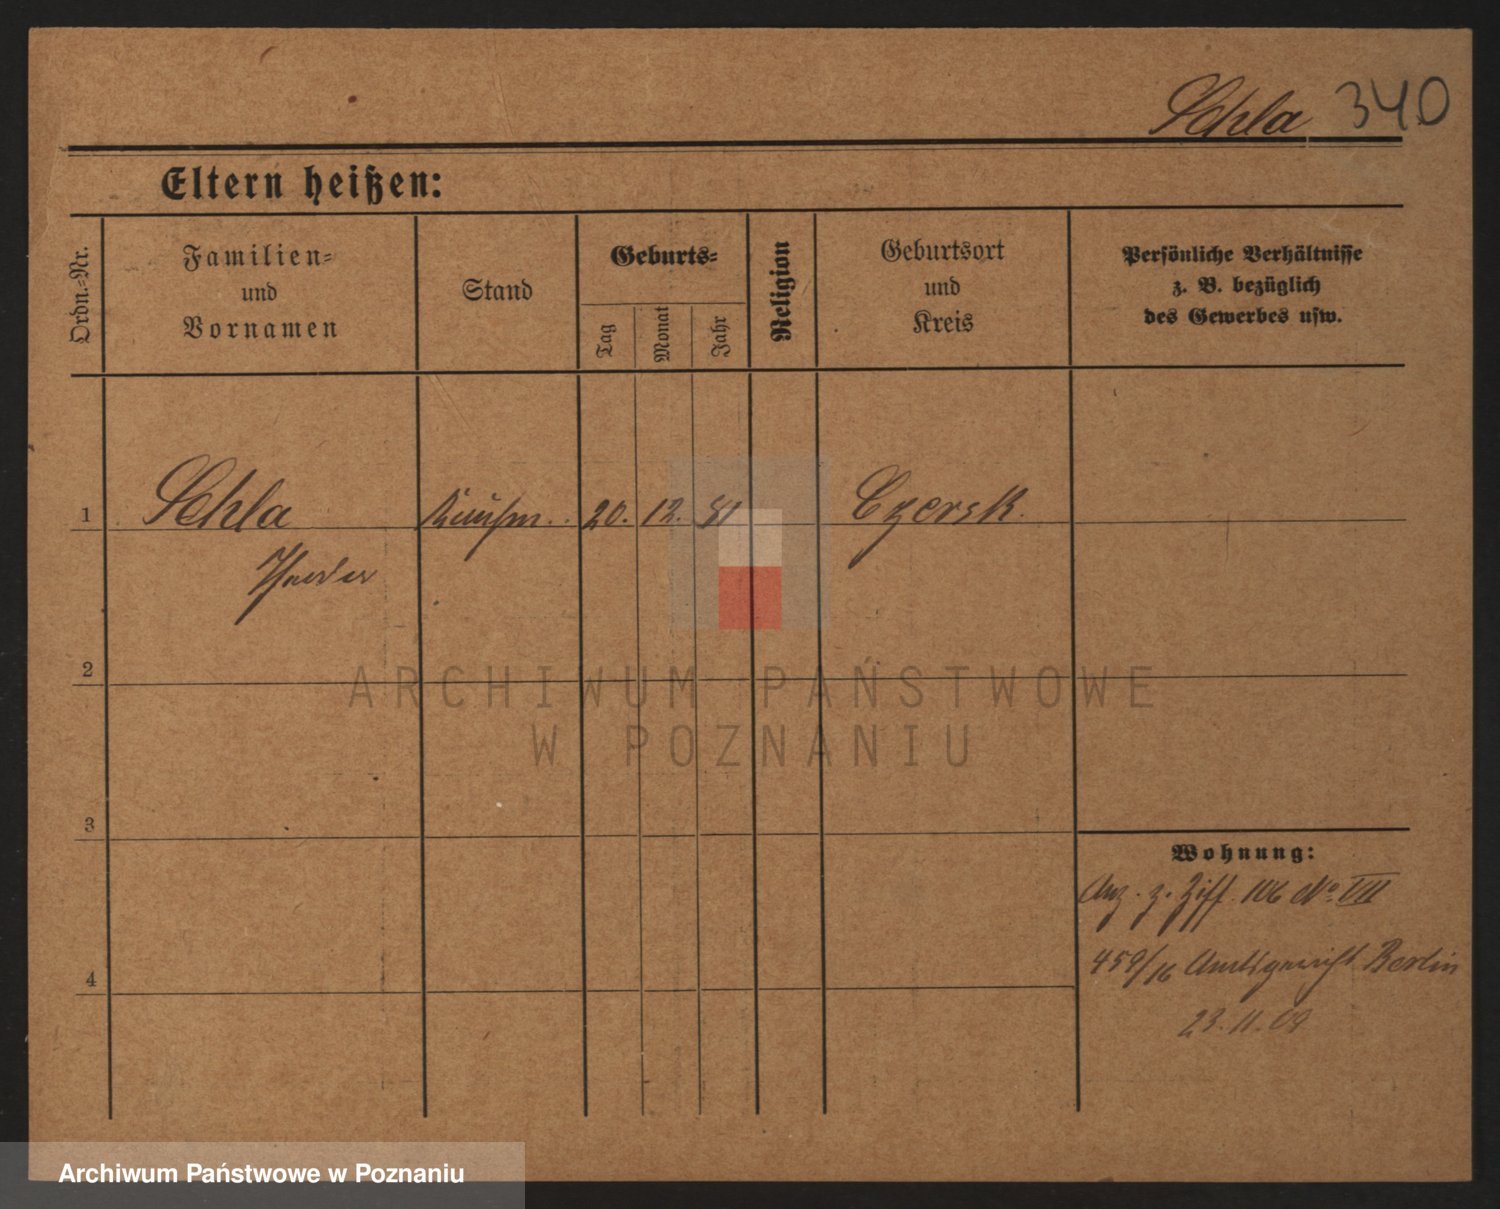 Schla 340
Eltern heißen:
Ordn.-Nr.
Familien-
und
Vornamen
Stand
Geburts-
Tag
Monat
Jahr
Religion
Geburtsort
und
Kreis
Persönliche Verhältnisse
z. B. bezüglich
des Gewerbes usw.
1 Schla Kaufm. 20. 12. 81 Czersk
2
3
4
Wohnung:
Anz. z. Ziff. 106 No. VII
459/16 Amtsgericht Berlin
23.11.09
ARCHIWUM PAŃSTWOWE
W POZNANIU
Archiwum Państwowe w Poznaniu